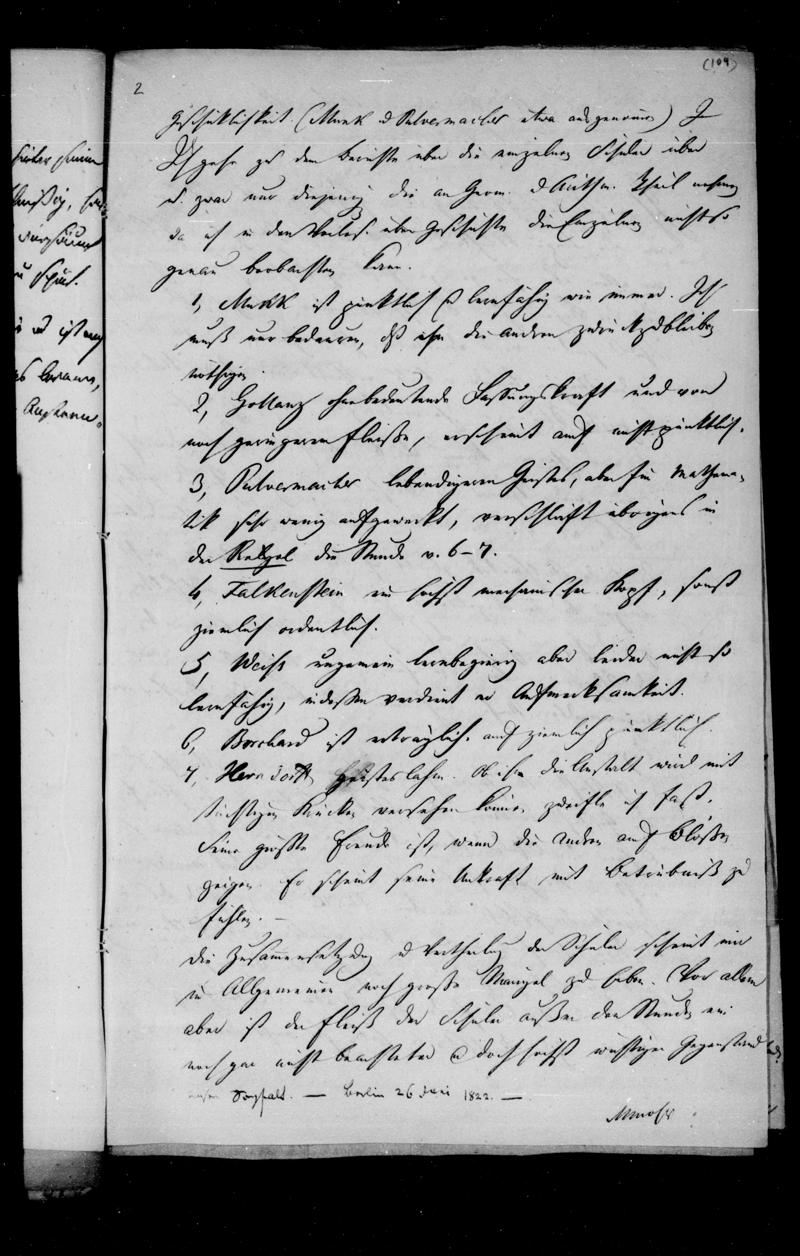 (104)
2
Geschicklichkeit. (Munk u Pulvermacher etwa ausgenommen)
Ich gehe zu dem Berichte über die einzelnen Schüler über
u. zwar nur diejenigen die an Geom. u Arithm. Theil nehmen
da ich in den Vorles. über Geschichte die Einzelnen nicht so
genau beobachten kann.
1, Munk ist pünktlich u lernfähig wie immer. Ich
muß nur bedauern, daß ihn die andren zurückzubleiben
nöthigen.
2, Gollanz ohne bedeutende Fassungskraft und von
noch geringerem Fleiße, erscheint auch nicht pünktlich.
3, Pulvermacher lebendigeren Geistes, aber für Mathema-
tik sehr wenig aufgeweckt, verschläft übrigens in
der Regel die Stunde v. 6–7.
4, Falkenstein ein höchst mechanischer Kopf, sonst
ziemlich ordentlich.
5, Weiss ungemein lernbegierig aber leider nicht so
lernfähig, indessen verdient er Aufmerksamkeit.
6, Borchard ist erträglich. auch ziemlich pünktlich.
7, geisteslahm. Ob ihn die Anstalt wird mit
tüchtigen Krücken versehen können, zweifle ich fast.
Seine größte Freude ist, wenn die Andren auch Blößen
zeigen. Er scheint seine Unkraft mit Betrübniß zu
fühlen. –
Die Zusammensetzung u Vertheilung der Schüler scheint mir
im Allgemeinen noch große Mängel zu haben. Vor allem
aber ist der Fleiß der Schüler außer den Stunden ein
noch gar nicht beachteter u doch höchst wichtiger Gegenstand
unsrer Sorgfalt. — Berlin 26 1822. —
M Moser